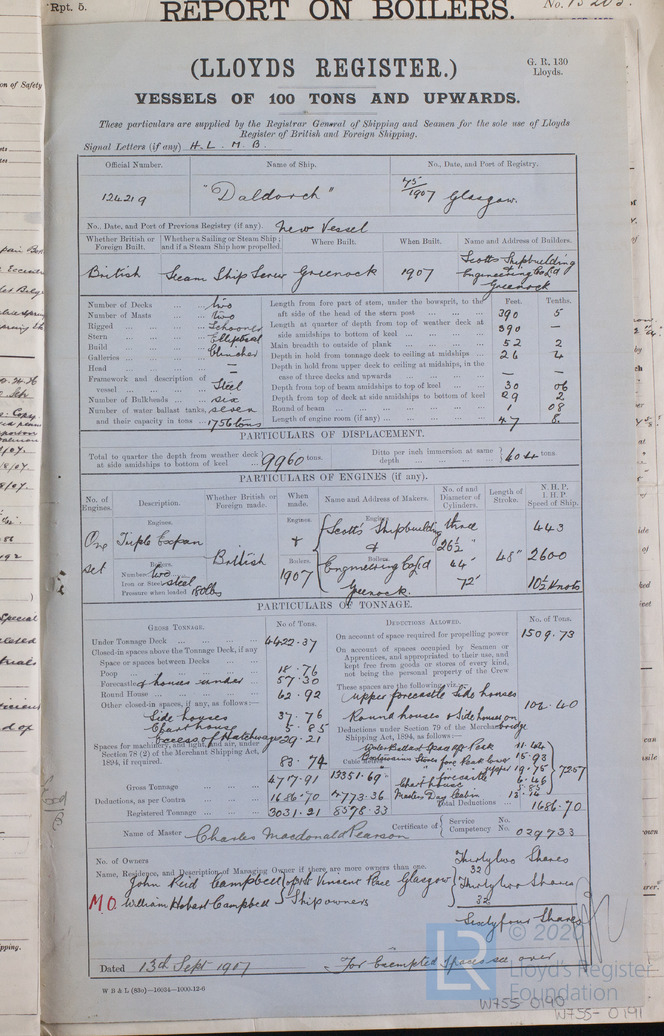 Rpt. 5.
REPORT ON BOILERS.
No.
(LLOYDS REGISTER.)
G. R. 130
Lloyds.
VESSELS OF 100 TONS AND UPWARDS.
These particulars are supplied by the Registrar General of Shipping and Seamen for the sole use of Lloyds
Register of British and Foreign Shipping.
Signal Letters (if any) H. L. M. B.
Official Number. Name of Ship. No., Date, and Port of Registry.
124219 "Daldorch" 75/1907 Glasgow.
No., Date, and Port of Previous Registry (if any). New Vessel
Whether British or Foreign Built. Whether a Sailing or Steam Ship; and if a Steam Ship how propelled. Where Built. When Built. Name and Address of Builders.
British Steam Ship Screw Greenock 1907 Scotts Shipbuilding & Engineering Co Ld Greenock
Number of Decks two
Number of Masts two
Rigged Schooner
Stern Elliptical
Build Clincher
Galleries —
Head —
Framework and description of vessel Steel
Number of Bulkheads six
Number of water ballast tanks, seven
and their capacity in tons 1756 tons
Feet. Tenths.
Length from fore part of stem, under the bowsprit, to the aft side of the head of the stern post 390 5
Length at quarter of depth from top of weather deck at side amidships to bottom of keel 390 —
Main breadth to outside of plank 52 2
Depth in hold from tonnage deck to ceiling at midships 26 4
Depth in hold from upper deck to ceiling at midships, in the case of three decks and upwards — —
Depth from top of beam amidships to top of keel 30 06
Depth from top of deck at side amidships to bottom of keel 29 2
Round of beam 1 08
Length of engine room (if any) 47 8
PARTICULARS OF DISPLACEMENT.
Total to quarter the depth from weather deck at side amidships to bottom of keel 9960 tons.
Ditto per inch immersion at same depth 40 tons
PARTICULARS OF ENGINES (if any).
No. of Engines. Description. Whether British or Foreign made. When made. Name and Address of Makers. No. of and Diameter of Cylinders. Length of Stroke. N.H.P. I.H.P. Speed of Ship.
Engines. Engines. Engines.
One Set Triple Expan British & 1907 Scott's Shipbuilding & Engineering Co Ld Greenock. three 26½" 44" 72" 48" 443 2600 10½ Knots
Boilers. Boilers. Boilers.
Number two
Iron or Steel steel
Pressure when loaded 180 lbs
PARTICULARS OF TONNAGE.
GROSS TONNAGE. No. of Tons. DEDUCTIONS ALLOWED. No. of Tons.
Under Tonnage Deck 4422.37
Closed-in spaces above the Tonnage Deck, if any
Space or spaces between Decks
Poop 18.76
Forecastle & houses under 57.30
Round House 62.92
Other closed-in spaces, if any, as follows:—
Side houses 37.76
Chart house 5.85
Excess of Hatchways 29.21
Spaces for machinery, and light, and air, under Section 78 (2) of the Merchant Shipping Act, 1894, if required. 83.74
Gross Tonnage 4717.91 13351.69
Deductions, as per Contra 1686.70 4773.36
Registered Tonnage 3031.21 8578.33
On account of space required for propelling power 1509.73
On account of spaces occupied by Seamen or Apprentices, and appropriated to their use, and kept free from goods or stores of every kind, not being the personal property of the Crew
These spaces are the following, viz.:—
Upper forecastle Side houses
Round houses & Side houses on bridge 104.40
Deductions under Section 79 of the Merchant Shipping Act, 1894, as follows:—
Water Ballast Space Aft Peak 11.
Boatswains Stores fore Peak lower 15.93
upper forecastle 19.75
Chart house 5.85
Masters Day Cabin 13.
7257
Total Deductions 1686.70
Name of Master Charles Macdonald Pearson Certificate of Service No. Competency No. 029733
No. of Owners
Name, Residence, and Description of Managing Owner if there are more owners than one.
John Reid Campbell Vincent Place Glasgow Thirty two Shares 32
M.O. William Hobart Campbell Shipowners Thirty two Shares 32
Sixty four Shares
Dated 13th Sept 1907 For Exempted Spaces see over
W B & L (83o)—16034—1000-12-6
LR © 202
Lloyd's Register
Foundation
W755-0190
W755-0191